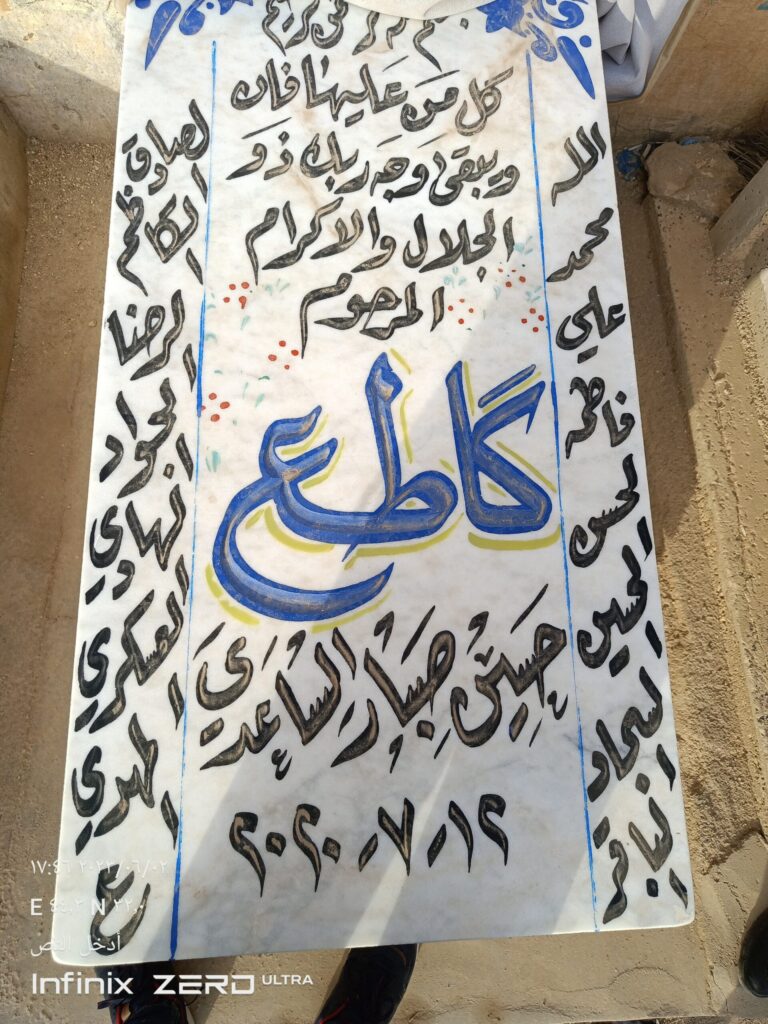 كل من عليها فان
ويبقى وجه ربك ذو
الجلال والاكرام
المرحوم
گاطع
حسين جبار الساعدي
١٢-٧-٢٠٢٠
الله
محمد
علي
فاطمه
الحسن
الحسين
السجاد
الباقر
الصادق
الكاظم
الرضا
الجواد
الهادي
العسكري
المهدي
ع
أدخل النص
Infinix ZERO ULTRA